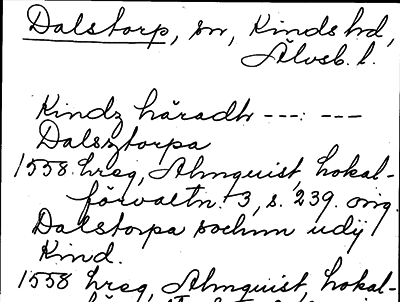 Dalstorp, sn, Kinds hd,
Älvsb. l.
Kindz häradh ---: ---
Dalsztorpa
1558 hrsg, Almquist, Lokal-
förvaltn. 3, s. 239. orig.
Dalstorpa sochnn udij
Kind.
1558 hrsg, Almquist, Lokal-